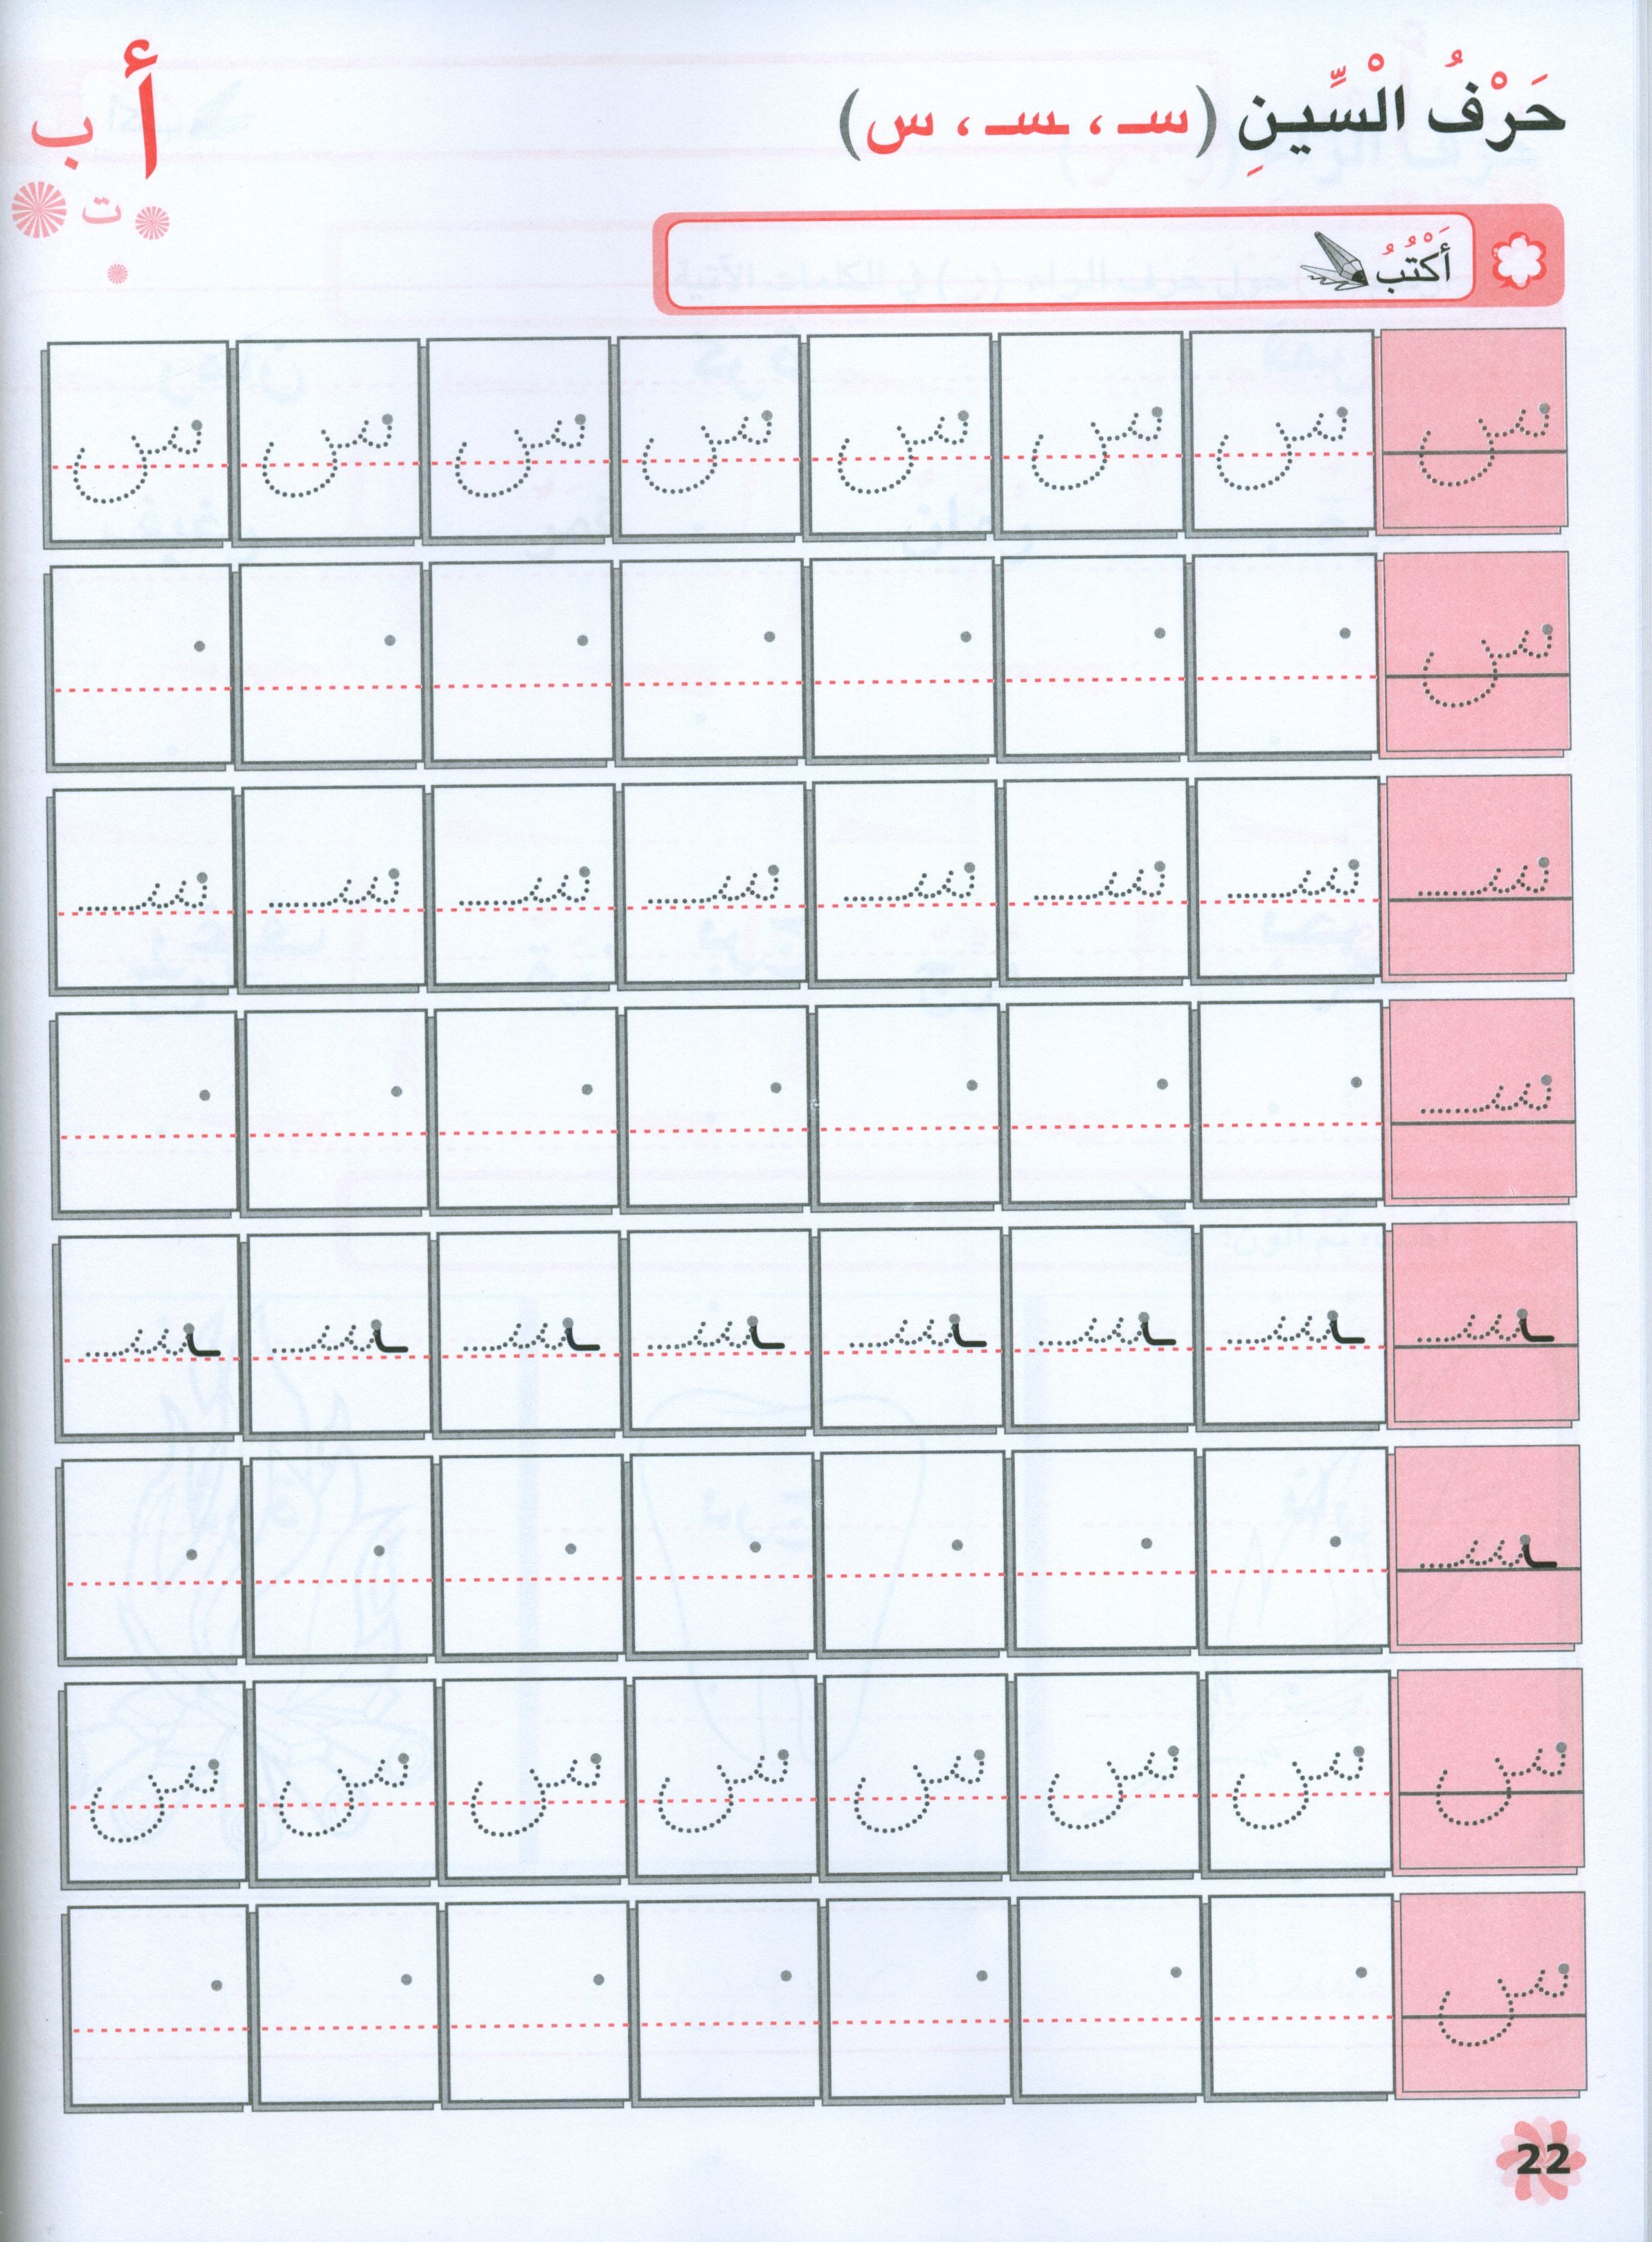 حَرْفُ الْسِّينِ (سـ ، ـسـ ، س)
أ ب
ت
أَكْتُبُ
س س س س س س س س
س
سـ سـ سـ سـ سـ سـ سـ سـ
سـ
ـسـ ـسـ ـسـ ـسـ ـسـ ـسـ ـسـ ـسـ
ـسـ
س س س س س س س س
س
22